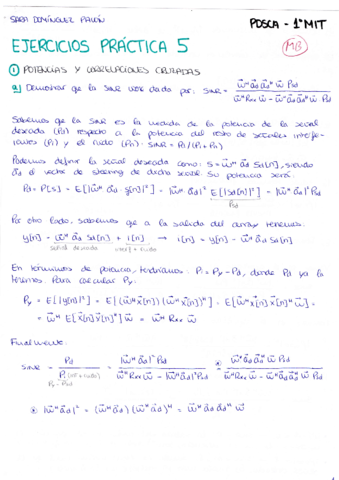 SARA DOMÍNGUEZ PAVÓN
PDSCA - 1º MIT
EJERCICIOS PRÁCTICA 5
MB
① POTENCIAS Y CORRELACIONES CRUZADAS
a) Demostrar que la SINR viene dada por: SINR = (w^H a_d a_d^H w P_d) / (w^H R_xx w - w^H a_d a_d^H w P_d)
Sabemos que la SINR es la medida de la potencia de la señal
deseada (Pd) respecto a la potencia del resto de señales interfe-
rentes (Pi) y el ruido (Pn): SINR = Pd/(Pi+Pn)
Podemos definir la señal deseada como: s = w^H a_d S_d[n], siendo
a_d el vector de steering de dicha señal. Su potencia será:
Pd = P{s} = E[|w^H a_d · S_d[n]|²] = |w^H a_d|² E[|S_d[n]|²] = |w^H a_d|² Pd
Pd
Por otro lado, sabemos que a la salida del array tenemos:
y[n] = w^H a_d S_d[n] + i[n] → i[n] = y[n] - w^H a_d S_d[n]
señal deseada
En términos de potencia, tendríamos: Pi = Py - Pd, donde Pd ya la
tenemos. Para calcular Py:
Py = E[|y[n]|²] = E[(w^H x[n])(w^H x[n])^H] = E[w^H x[n] x[n]^H w] =
= w^H E[x[n] x[n]^H] w = w^H R_xx w
Finalmente:
SINR = Pd / Pi = |w^H a_d|² Pd / (w^H R_xx w - |w^H a_d|² Pd) = w^H a_d a_d^H w Pd / (w^H R_xx w - w^H a_d a_d^H w Pd)
Py - Pd
⊛ |w^H a_d|² = (w^H a_d)(w^H a_d)^H = w^H a_d a_d^H w